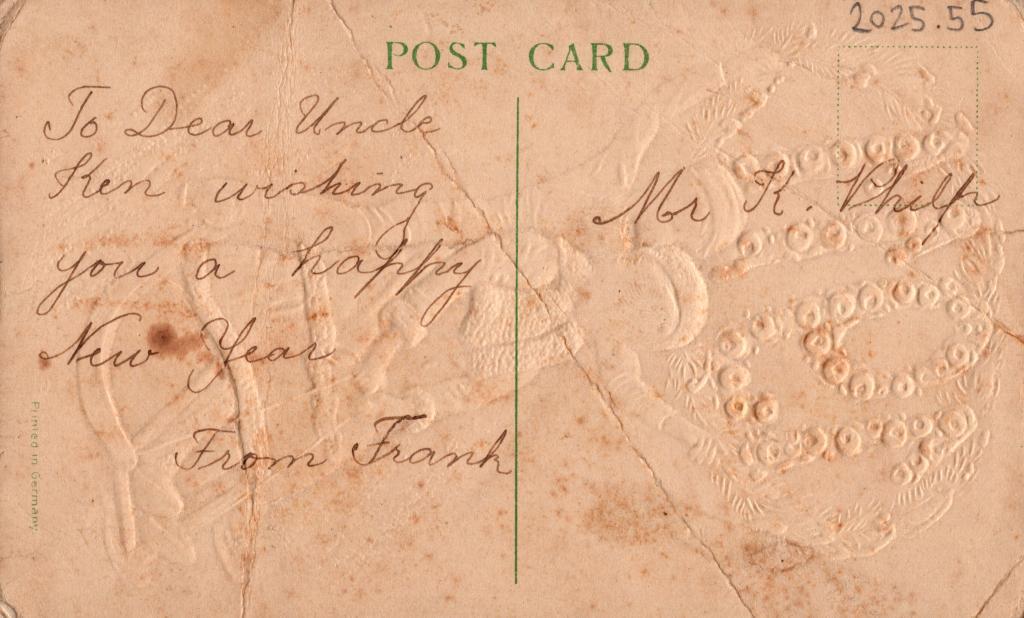 2025.55
POST CARD
To Dear Uncle
Ken wishing
you a happy
New Year
From Frank
Mr K. Philp
Printed in Germany.